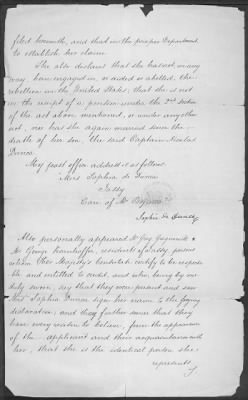 filed herewith, and that in the proper Department
to establish her claim.
She also declares that she has not, in any
way, been engaged in, or aided or abetted, the
rebellion in the United States; that she is not
in the receipt of a pension under the 2nd section
of the act above mentioned, or under any other
act, nor has she again married since the
death of her son, the said Captain Nicolas
Dunca.
My post office address is as follows
Mrs Sophia de Dunca
Jassy
Care of Mr
Sophie de Dunca
Also personally appeared Mr Guy &
Mr George residents of Jassy, persons
whom Her Majesty's Consulate certify to be respecta-
ble and entitled to credit, and who, being by me
duly sworn, say that they were present and saw
Mrs Sophia Dunca sign her name to the foregoing
declaration; and they further swear that they
have every reason to believe, from the appearance
of the applicant and their acquaintance with
her, that she is the identical person she
represents